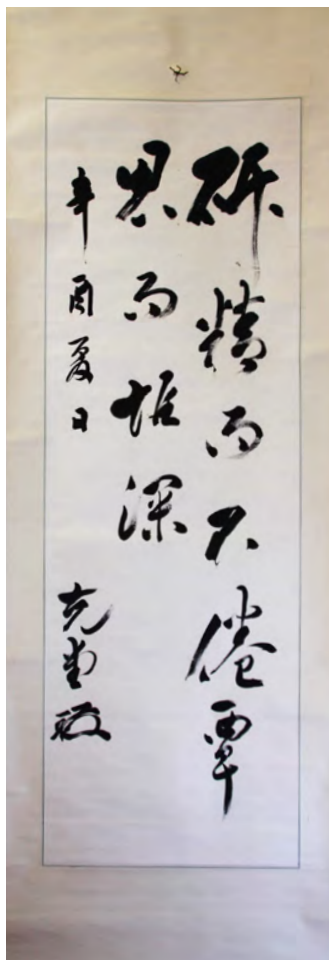 研精而不倦覃
思而惟深
辛酉夏日